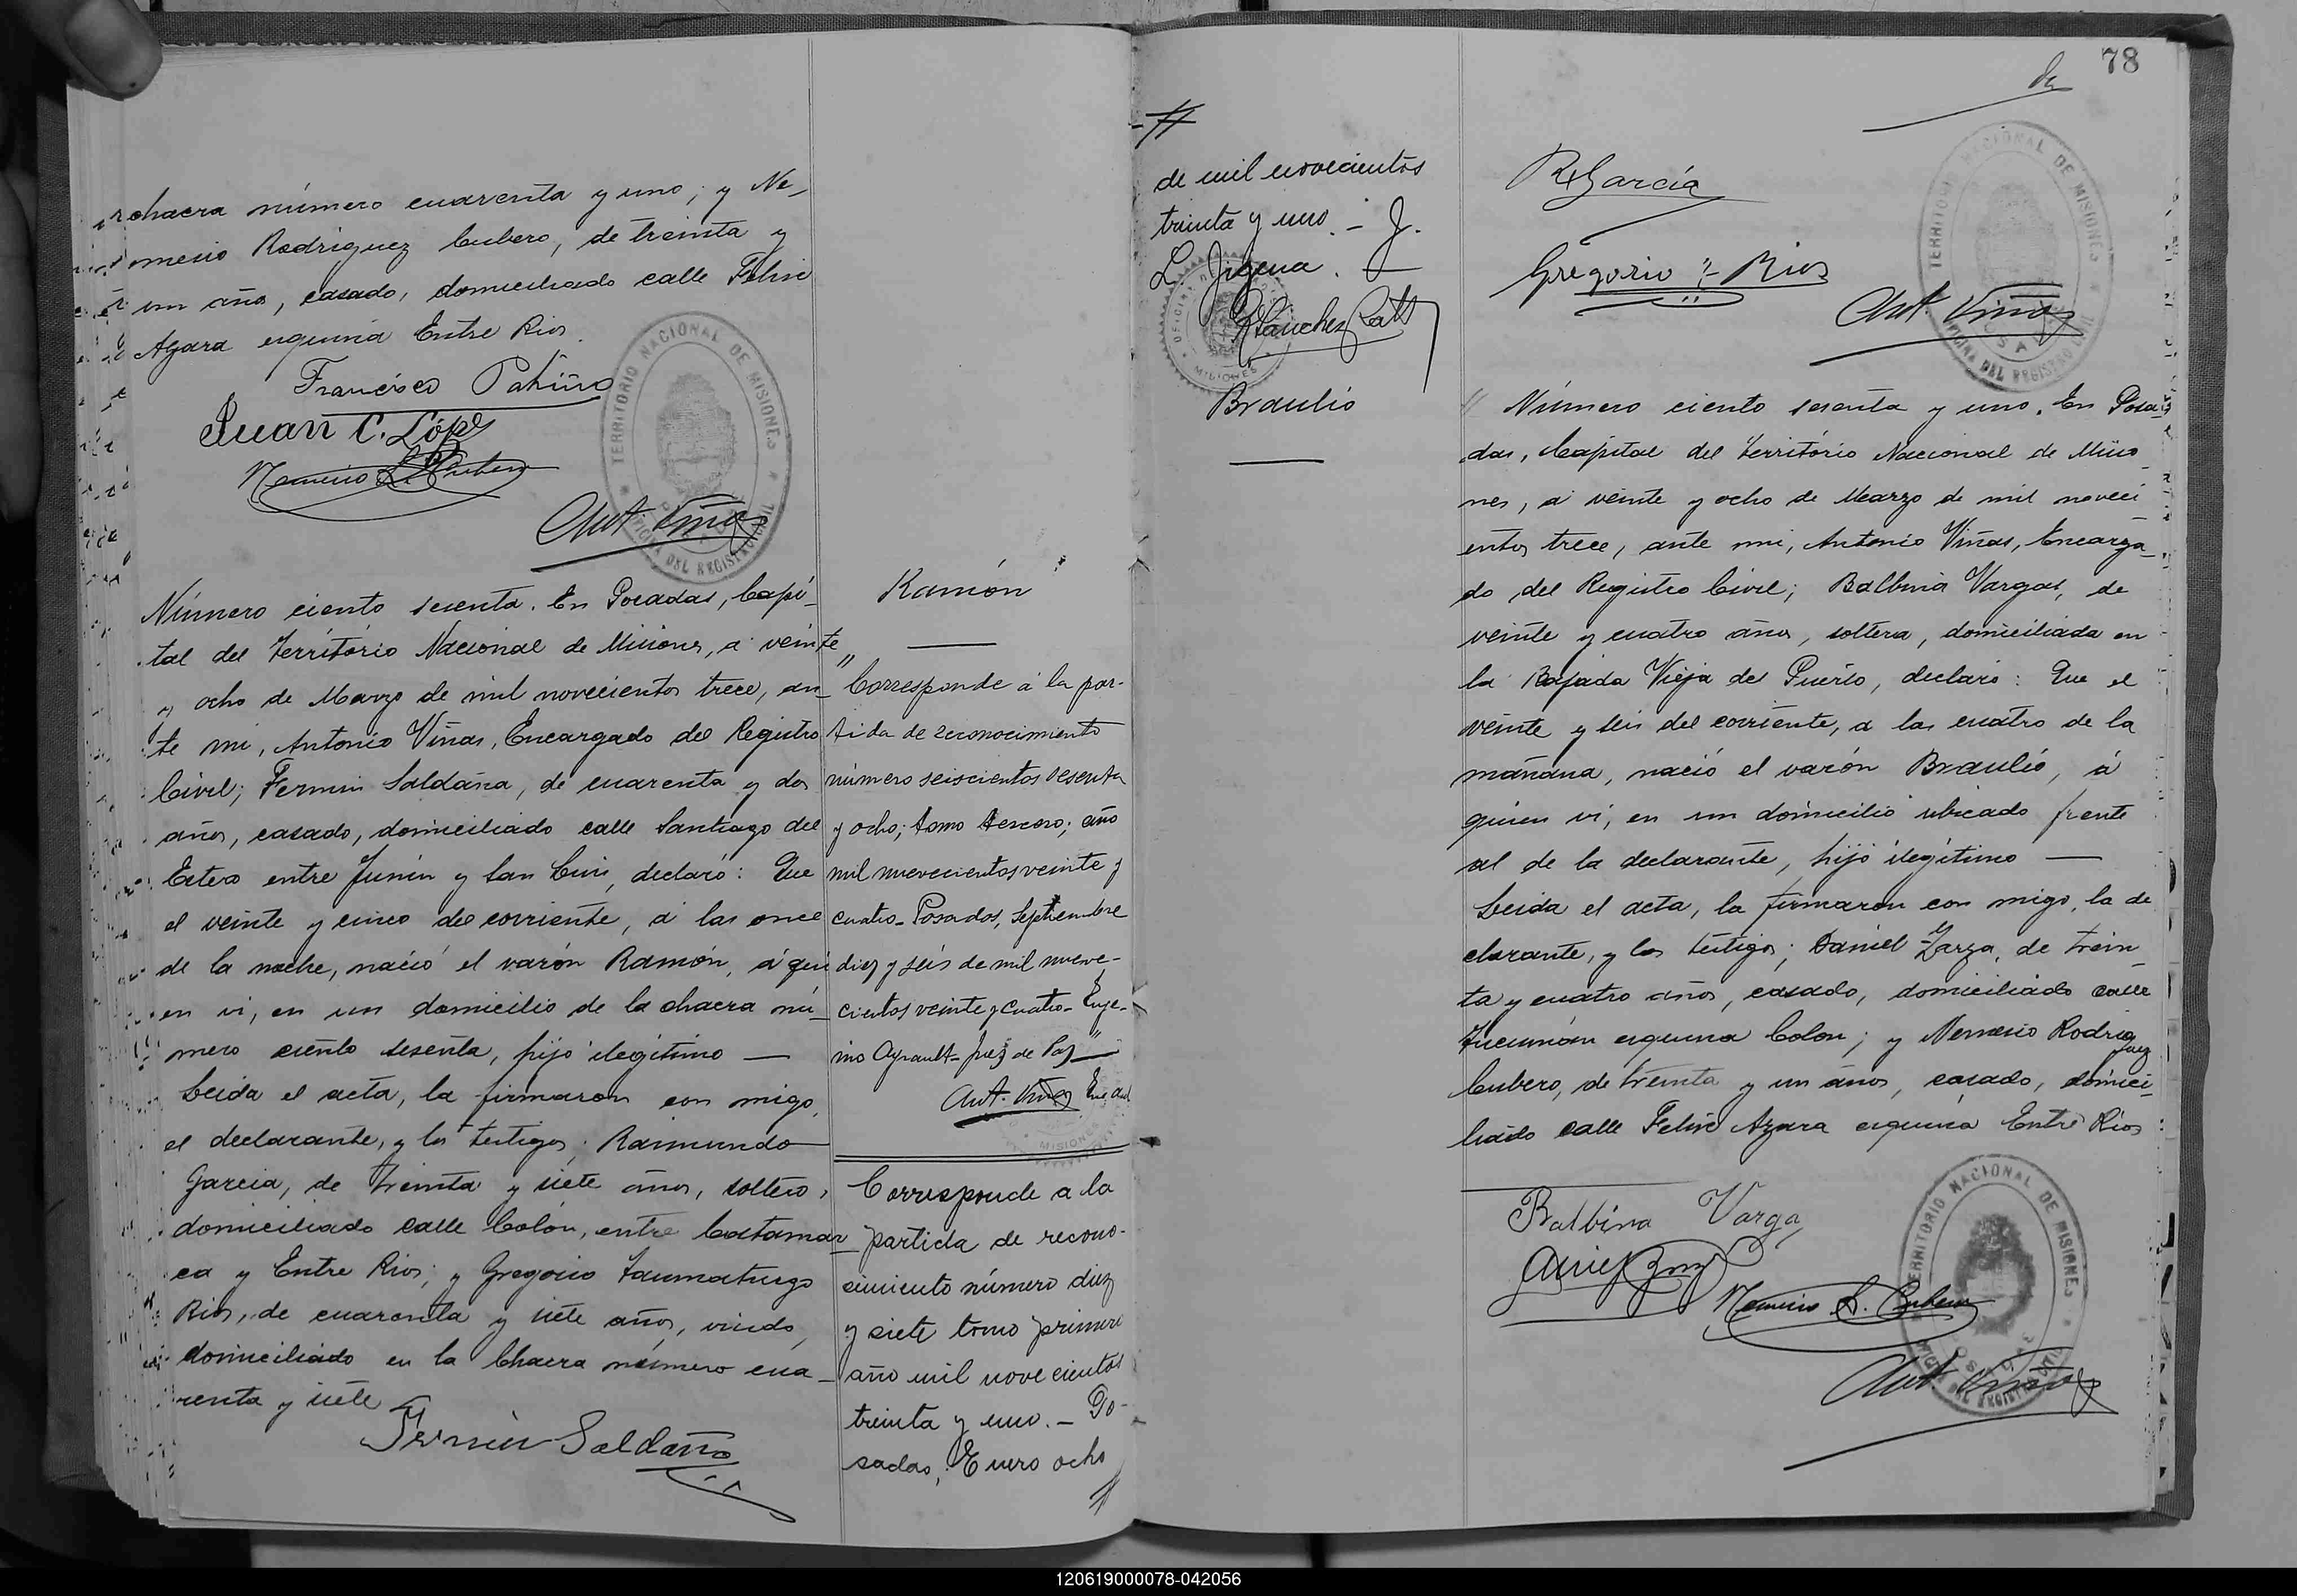 chacra número cuarenta y uno; y Ne_
mesio Rodriguez Cubero, de treinta y
un años, casado, domiciliado calle Felix
Azara esquina Entre Rios.
Francisco Patiño
Juan C. López
Nemesio R. Cubero
Ant. Viñas
TERRITORIO NACIONAL DE MISIONES
OFICINA DEL REGISTRO CIVIL
Número ciento sesenta. En Posadas, Capi_
tal del Território Nacional de Misiones, á veinte
y ocho de Marzo de mil novecientos trece, an_
te mi, Antonio Viñas, Encargado del Registro
Civil; Fermin Saldaña, de cuarenta y dos
años, casado, domiciliado calle Santiago del
Estero entre Junin y San Luis, declaró: Que
el veinte y cinco del corriente, á las once
de la noche, nació el varón Ramón, á qui
en vi, en un domicilio de la chacra nú_
mero ciento sesenta, hijo ilegítimo —
Leida el acta, la firmaron con migo,
el declarante, y los testigos; Raimundo
Garcia, de treinta y siete años, soltero,
domiciliado calle Colón, entre Catamar_
ca y Entre Rios; y Gregorio Taumaturgo
Rios, de cuarenta y siete años, viudo,
domiciliado en la Chacra número cua_
renta y siete
Fermin Saldaña
Ramón
"Corresponde á la par-
tida de reconocimiento
número seiscientos sesenta
y ocho; tomo tercero; año
mil nuevecientos veinte y
cuatro_ Posadas, Septiembre
diez y séis de mil nueve-
cientos veinte y cuatro_ Euge-
nio Ayrault_ Juez de Paz_"
Ant. Viñas
MISIONES
Corresponde a la
partida de recono-
cimiento número diez
y siete tomo primero
año mil novecientos
treinta y uno. - Po-
sadas, Enero ocho
//
//
de mil novecientos
treinta y uno. - J.
L. Jigena. —
R Sanchez Ratti
MISIONES
Braulio
78
R Garcia
Gregorio T. Rios
Ant. Viñas
TERRITORIO NACIONAL DE MISIONES
OFICINA DEL REGISTRO CIVIL
Número ciento sesenta y uno. En Posa_
das, Capital del Território Nacional de Misio_
nes, á veinte y ocho de Marzo de mil noveci
entos trece, ante mi, Antonio Viñas, Encarga_
do del Registro Civil; Balbina Vargas, de
veinte y cuatro años, soltera, domiciliada en
la Bajada Vieja del Puerto, declaró: Que el
veinte y seis del corriente, á las cuatro de la
mañana, nació el varón Braulio, á
quien vi, en un domicilio ubicado frente
al de la declarante, hijo ilegítimo —
Leida el acta, la firmaron con migo, la de
clarante, y los testigos; Daniel Zarza, de trein_
ta y cuatro años, casado, domiciliado calle
Tucumán esquina Colon; y Nemesio Rodriguez
Cubero, de treinta y un años, casado, domici_
liado calle Felix Azara esquina Entre Rios
Balbina Varga
Nemesio R. Cubero
Ant. Viñas
TERRITORIO NACIONAL DE MISIONES
120619000078-042056